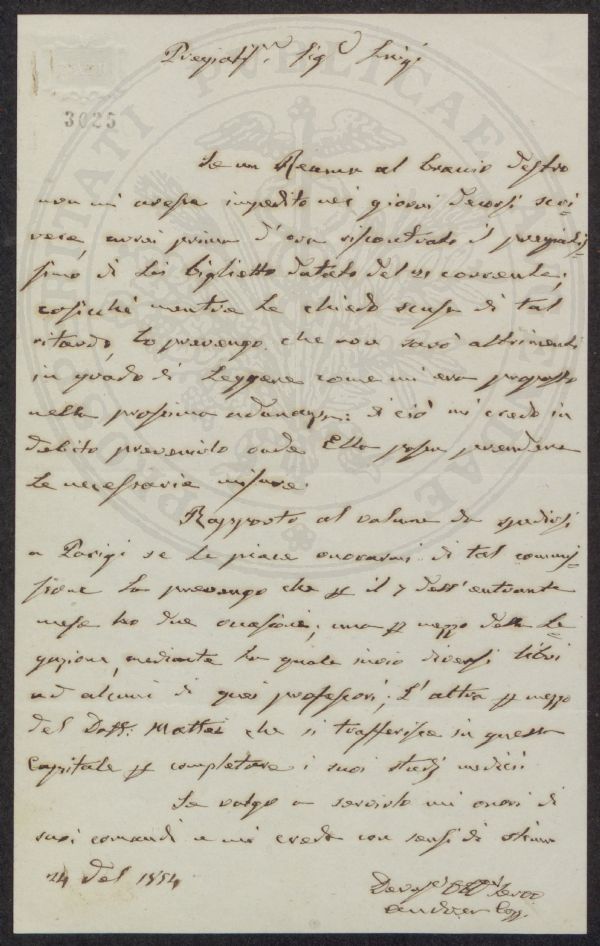 Pregiat.mo Sig.r Luigi
3025
Se un Reuma al braccio destro
non mi avesse impedito nei giorni decorsi scri-
vere, avrei prima d'ora riscontrato il pregiatis-
simo di Lei biglietto datato del 21 corrente;
cosicché mentre Le chiedo scusa di tal
ritardo, La prevengo che non sarò altrimenti
in grado di Leggere come mi era proposto
nella prossima adunanza: di ciò mi credo in
debito prevenirlo onde Ella possa prendere
Le necessarie misure.
Rapporto al volume da spedirsi
a Parigi se Le piace onorarmi di tal commis-
sione La prevengo che per il 7 dell'entrante
mese ho due occasioni; una per mezzo della Le-
gazione, mediante La quale invio diversi libri
ad alcuni di quei professori; L'altra per mezzo
del Dott. Mattei che si trasferisce in questa
Capitale per completare i suoi studj medici.
Se valgo a servirlo mi onori di
suoi comandi e mi credo con sensi di stima
24 del 1854
Dev.mo Obb.mo Servo